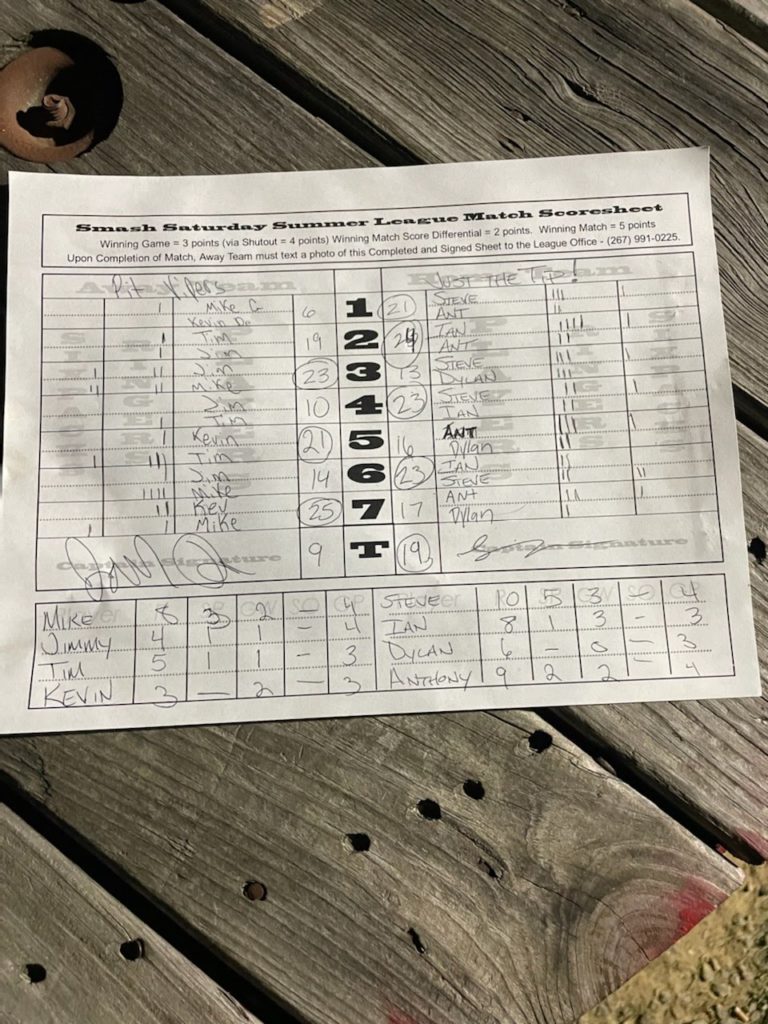 Smash Saturday Summer League Match Scoresheet
Winning Game = 3 points (via Shutout = 4 points) Winning Match Score Differential = 2 points. Winning Match = 5 points
Upon Completion of Match, Away Team must text a photo of this Completed and Signed Sheet to the League Office - (267) 991-0225.
Pit Vipers JUST THE TIP!
Mike G 6 1 21 STEVE
Kevin De ANT
Tim 19 2 IAN
Jim ANT
Jim 23 3 13 STEVE
Mike DYLAN
Jim 10 4 23 STEVE
Tim IAN
Kevin 21 5 16 ANT
Tim Dylan
Jim 14 6 23 IAN
Mike STEVE
Kev 25 7 17 ANT
Mike Dylan
Captain Signature 9 T 19 Captain Signature
MIKE 8 3 2 - 4 STEVE 10 5 3 - 4
JIMMY 4 1 1 - 4 IAN 8 1 3 - 3
TIM 5 1 1 - 3 DYLAN 6 - 0 - 3
KEVIN 3 - 2 - 3 ANTHONY 9 2 2 - 4